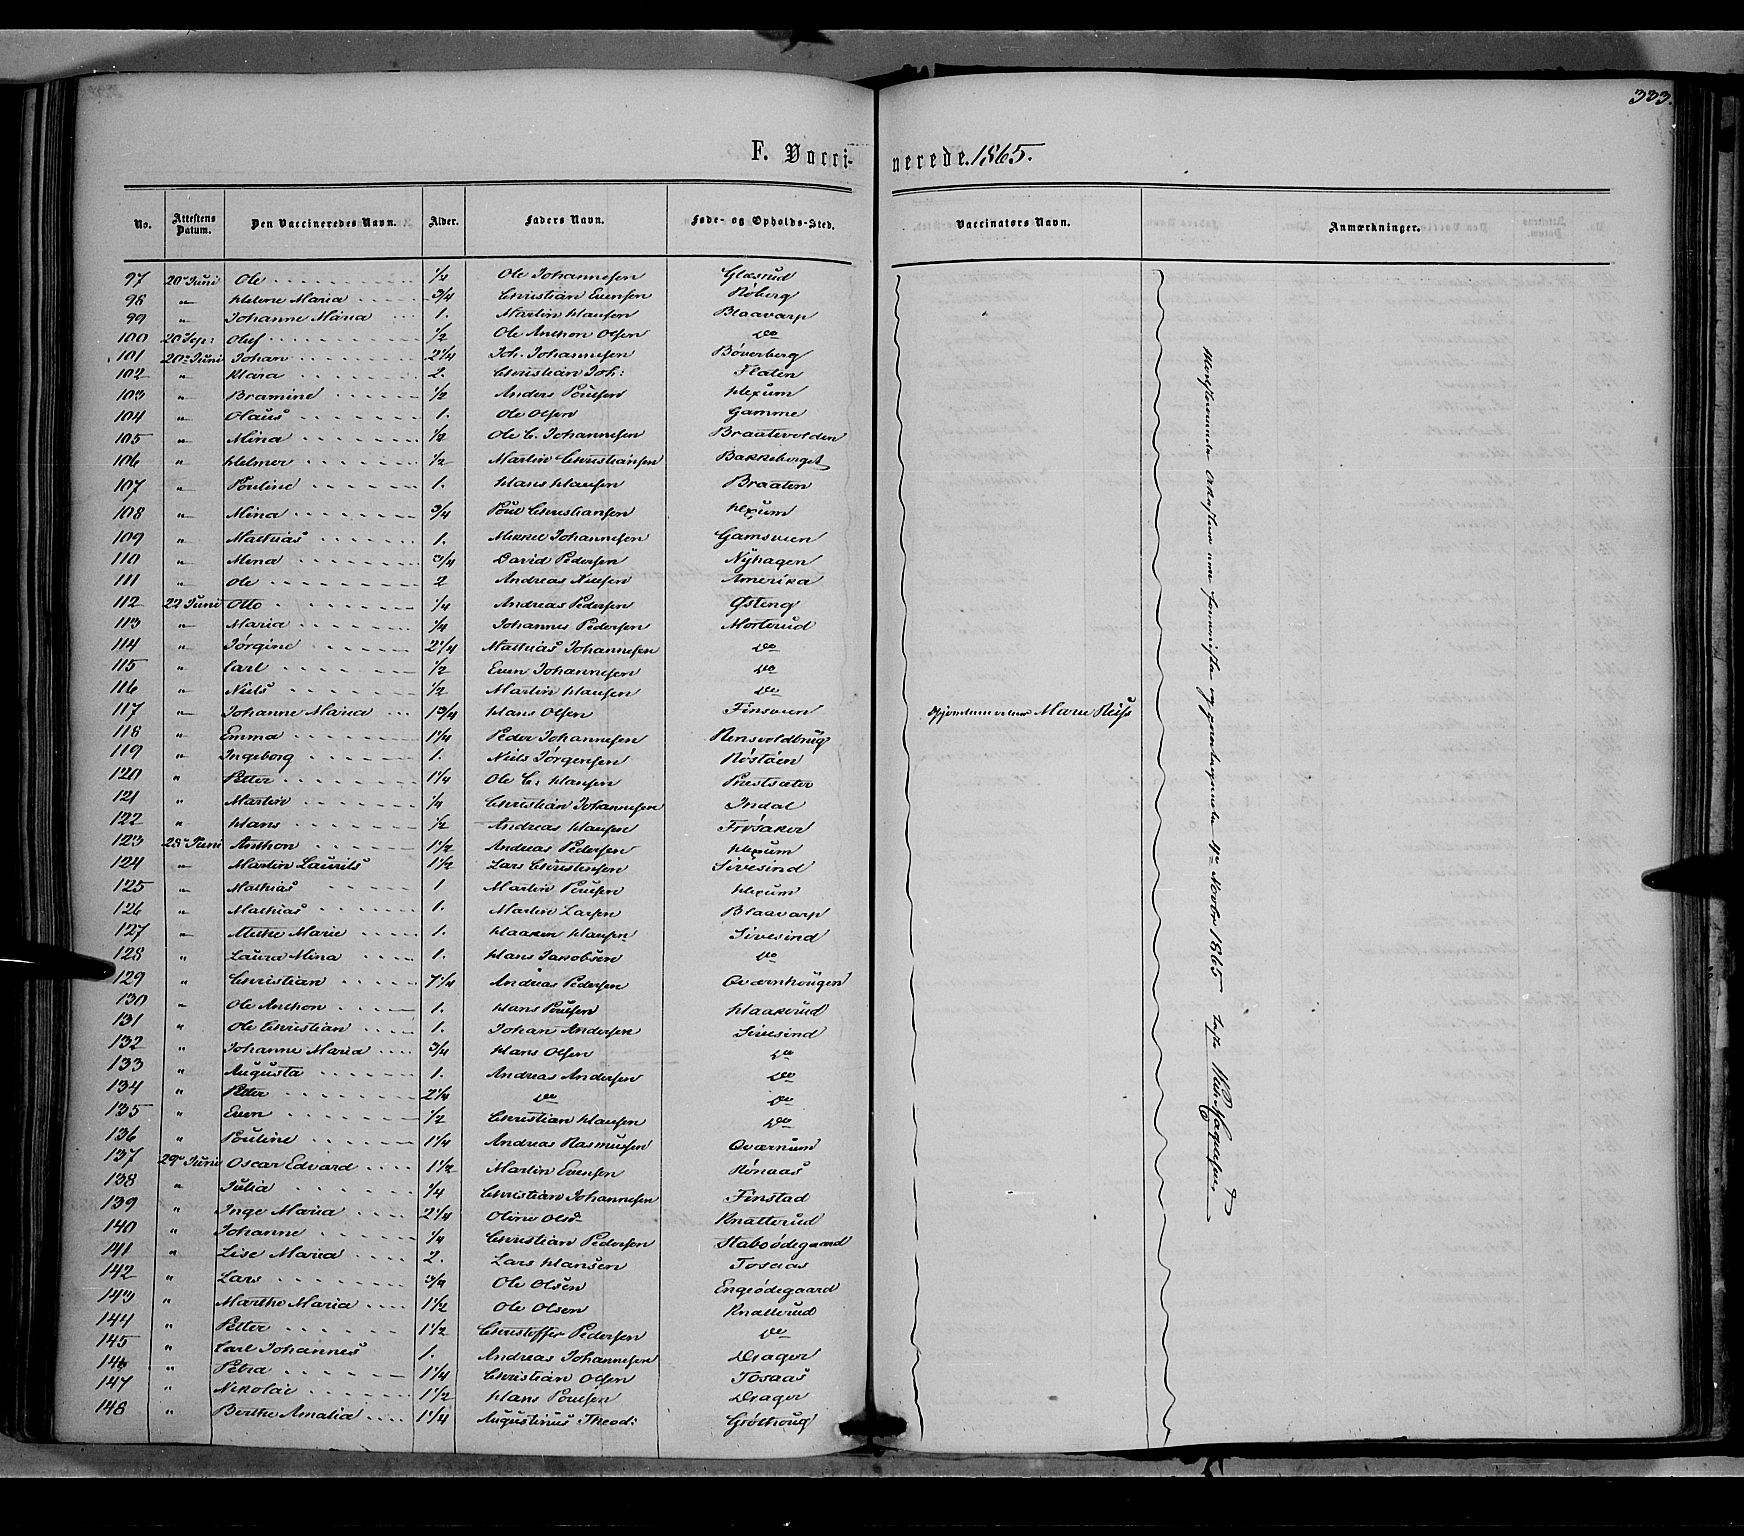 333.
F. Vaccinerede. 1865.
No. Attestens Datum. Den Vaccineredes Navn. Alder. Faders Navn. Føde- og Opholds-Sted. Vaccinators Navn. Anmærkninger.
97 20 Juni Ole 1/2 Ole Johannesen Glæsrud
98 " Helene Maria 3/4 Christian Evensen Røberg
99 " Johanne Maria 1. Martin Hansen Blaavarp
100 20 Sep: Oluf 1/2 Ole Anthon Olsen do
101 20 Juni Johan 2 1/4 Joh. Johannesen Bøverberg
102 " Klara 2. Christian Joh: Flaten
103 " Bramine 1/2 Anders Poulsen Hexum
104 " Olaus 1. Ole Olsen Gamme
105 " Mina 1/2 Ole C. Johannesen Braatevolden
106 " Helmer 1/2 Martin Christiansen Bakkeberget
107 " Pouline 1. Hans Hansen Braaten
108 " Mina 3/4 Poul Christiansen Hexum
109 " Mathias 1. Mikkel Johannesen Gamsveen
110 " Mina 3/4 David Pedersen Nyhagen
111 " Ole 2 Andreas Nielsen Amerika
112 22 Juni Otto 1/4 Andreas Pedersen Østeng
113 " Maria 1/4 Johannes Pedersen Morterud
114 " Jørgine 2 1/4 Mathias Johannesen do
115 " Carl 1/2 Even Johannesen do
116 " Niels 1/2 Martin Hansen do
117 " Johanne Maria 1 3/4 Hans Olsen Finsveen Marie Reiss
118 " Emma 1 1/4 Peder Johannesen Rensvoldbrug
119 " Ingeborg 1. Niels Jørgensen Røstøen
120 " Petter 1 1/4 Ole C: Hansen Prestsæter
121 " Martin 1/4 Christian Johannesen Indal
122 " Hans 1/2 Andreas Hansen Frøsaker
123 28 Juni Anthon 1 1/2 Andreas Pedersen Hexum
124 " Martin Laurits 1 1/2 Lars Christensen Sivesind
125 " Mathias 1 Martin Poulsen Hexum
126 " Mathias 1. Martin Larsen Blaavarp
127 " Mathe Marie 1. Haaken Hansen Sivesind
128 " Laura Mina 1. Hans Jakobsen do
129 " Christian 7 1/4 Andreas Pedersen Qværnhougen
130 " Ole Anthon 1. Hans Poulsen Haakerud
131 " Ole Christian 1. Johan Andersen Sivesind
132 " Johanne Maria 3/4 Hans Olsen do
133 " Augusta 1. Andreas Andersen do
134 " Peter 2 1/4 do do
135 " Even 1/2 Christian Hansen do
136 " Pouline 1 1/4 Andreas Rasmussen Qværnum
137 29 Juni Oscar Edvard 1 1/2 Martin Evensen Rønaas
138 " Julia 1/4 Christian Johannesen Finstad
139 " Inge Maria 2 1/4 Oline Olsd. Knatterud
140 " Johanne 1/4 Christian Pedersen Staboødegaard
141 " Lise Maria 2. Lars Hansen Tosaas
142 " Lars 3/4 Ole Olsen Engeødegaard
143 " Marthe Maria 1 1/2 Ole Olsen Knatterud
144 " Petter 1 1/2 Christoffer Pedersen do
145 " Carl Johannes 1. Andreas Johannesen Drager
146 " Petra 1 1/4 Christian Olsen Tosaas
147 " Nikolai 1 1/2 Hans Poulsen Drager
148 " Berthe Amalia 1 1/4 Augustinus Theod: Grøthoug
Novbr 1865